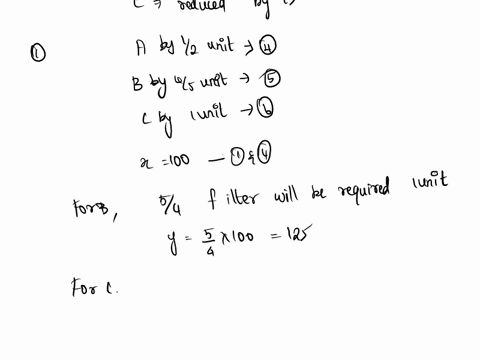 C → reduced by
①
A by 1/2 unit → ④
B by 4/5 unit → ⑤
C by 1 unit → ⑥
x = 100 — ① & ④
For B, 5/4 filter will be required 1 unit
y = 5/4 × 100 = 125
For C.